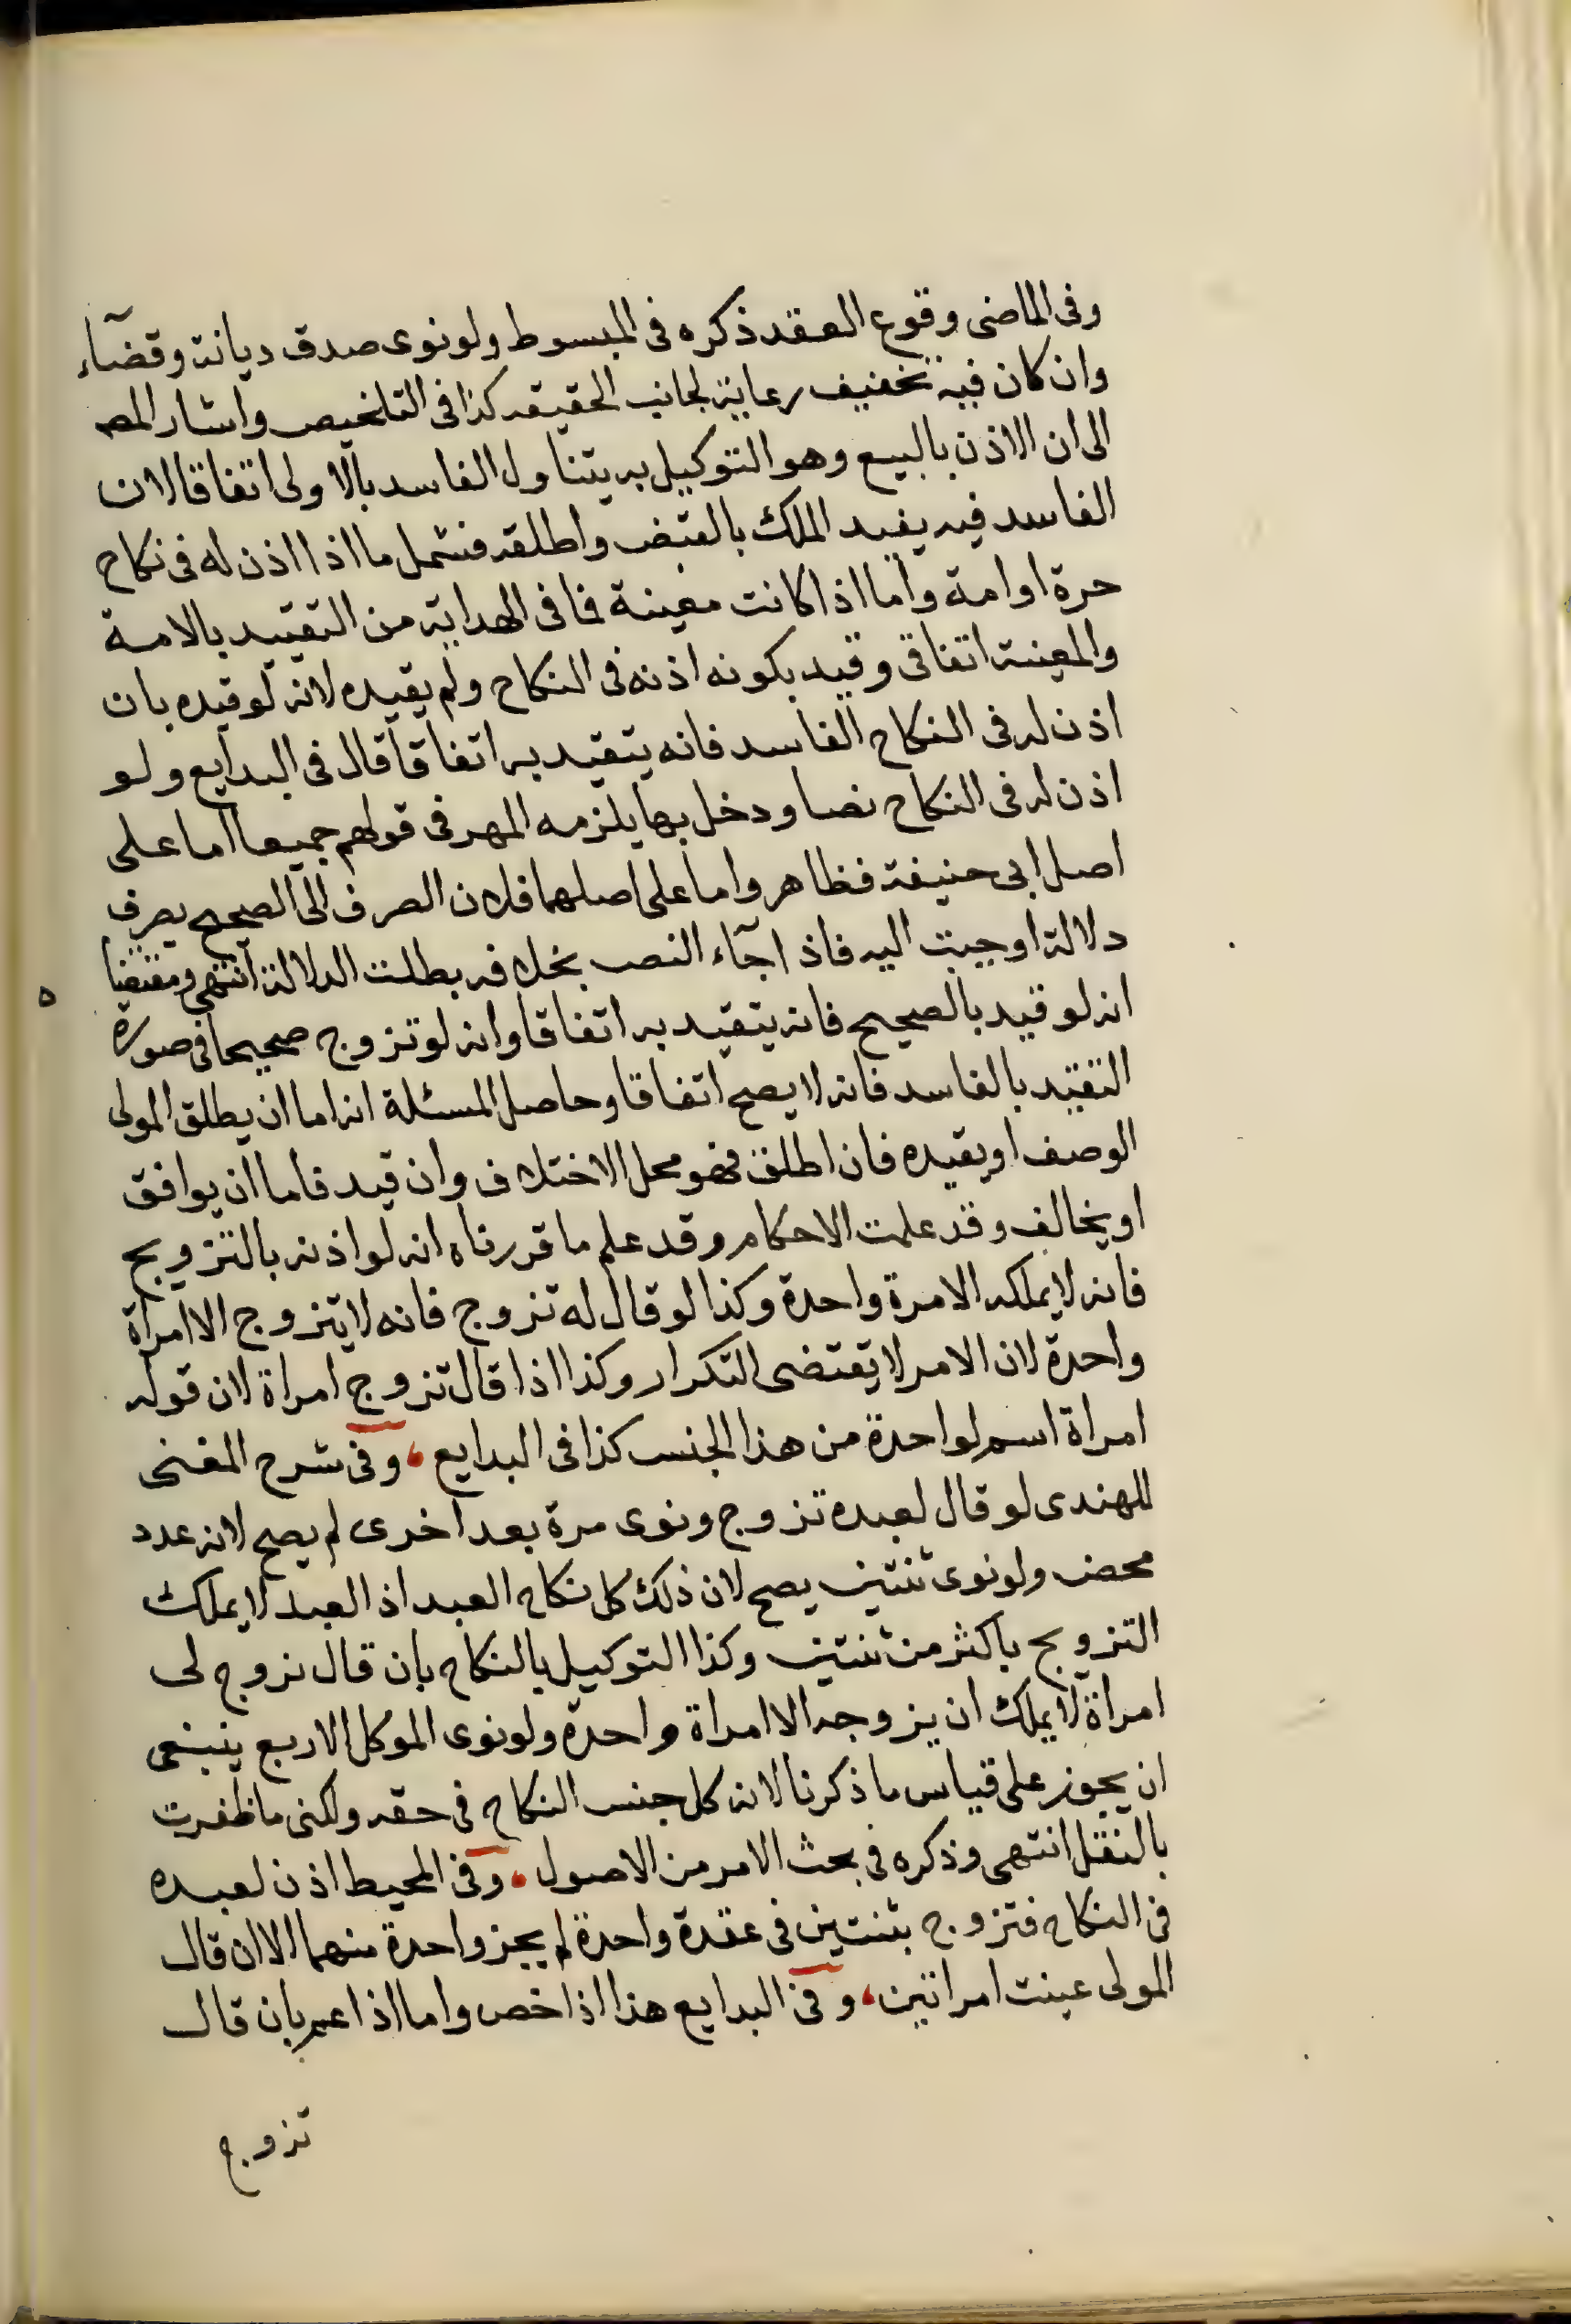 وفى الماضى وقوع العقد ذكره فى المبسوط ولو نوى صدق ديانة وقضآء
وان كان فيه تخفيف رعاية لجانب الحقيقة كذا فى التلخيص واشار المص
الى ان الاذن بالبيع وهو التوكيل به يتناول الفاسد بالاولى اتفاقا لان
الفاسد فيه يفيد الملك بالقبض واطلقه فشمل ما اذا اذن له فى نكاح
حرة او امة واما اذا كانت معينة فما فى الهداية من التقييد بالامة
والمعينة اتفاقى وقيد بكونه اذنه فى النكاح ولم يقيده لانه لو قيده بان
اذن له فى النكاح الفاسد فانه يتقيد به اتفاقا قال فى البدايع ولو
اذن له فى النكاح نصا ودخل بها يلزمه المهر فى قولهم جميعا اما على
اصل ابى حنيفة فظاهر واما على اصلهما فلان الصرف الى الصحيح بصرف
دلالة اوجبت اليه فاذا جآء النص بخلافه بطلت الدلالة انتهى ومقتضيا
انه لو قيد بالصحيح فانه يتقيد به اتفاقا وانه لو تزوج صحيحا فى صورة
التقييد بالفاسد فانه لا يصح اتفاقا وحاصل المسئلة انه اما ان يطلق المولى
الوصف او يقيده فان اطلق فهو محل الاختلاف وان قيد فاما ان يوافق
او يخالف وقد علمت الاحكام وقد علم ما قررناه انه لو اذنه بالتزويج
فانه لا يملكه الا مرة واحدة وكذا لو قال له تزوج فانه لا يتزوج الا امراة
واحدة لان الامر لا يقتضى التكرار وكذا اذا قال تزوج امراة لان قوله
امراة اسم لواحدة من هذا الجنس كذا فى البدايع، وفى شرح المغنى
للهندى لو قال لعبده تزوج ونوى مرة بعد اخرى لم يصح لانه عدد
محض ولو نوى ثنتين يصح لان ذلك كل نكاح العبد اذ العبد لا يملك
التزويج باكثر من ثنتين وكذا التوكيل بالنكاح بان قال تزوج لى
امراة لا يملك ان يزوجه الا امراة واحدة ولو نوى الموكل الاربع ينبغى
ان يجوز على قياس ما ذكرنا لانه كل جنس النكاح فى حقه ولكنى ما ظفرت
بالنقل انتهى وذكره فى بحث الامر من الاصول، وفى المحيط اذن لعبده
فى النكاح فتزوج بثنتين فى عقدة واحدة لم يجز واحدة منهما الا ان قال
المولى عينت امراتين، وفى البدايع هذا اذا خص واما اذا عمم بان قال
تزوج